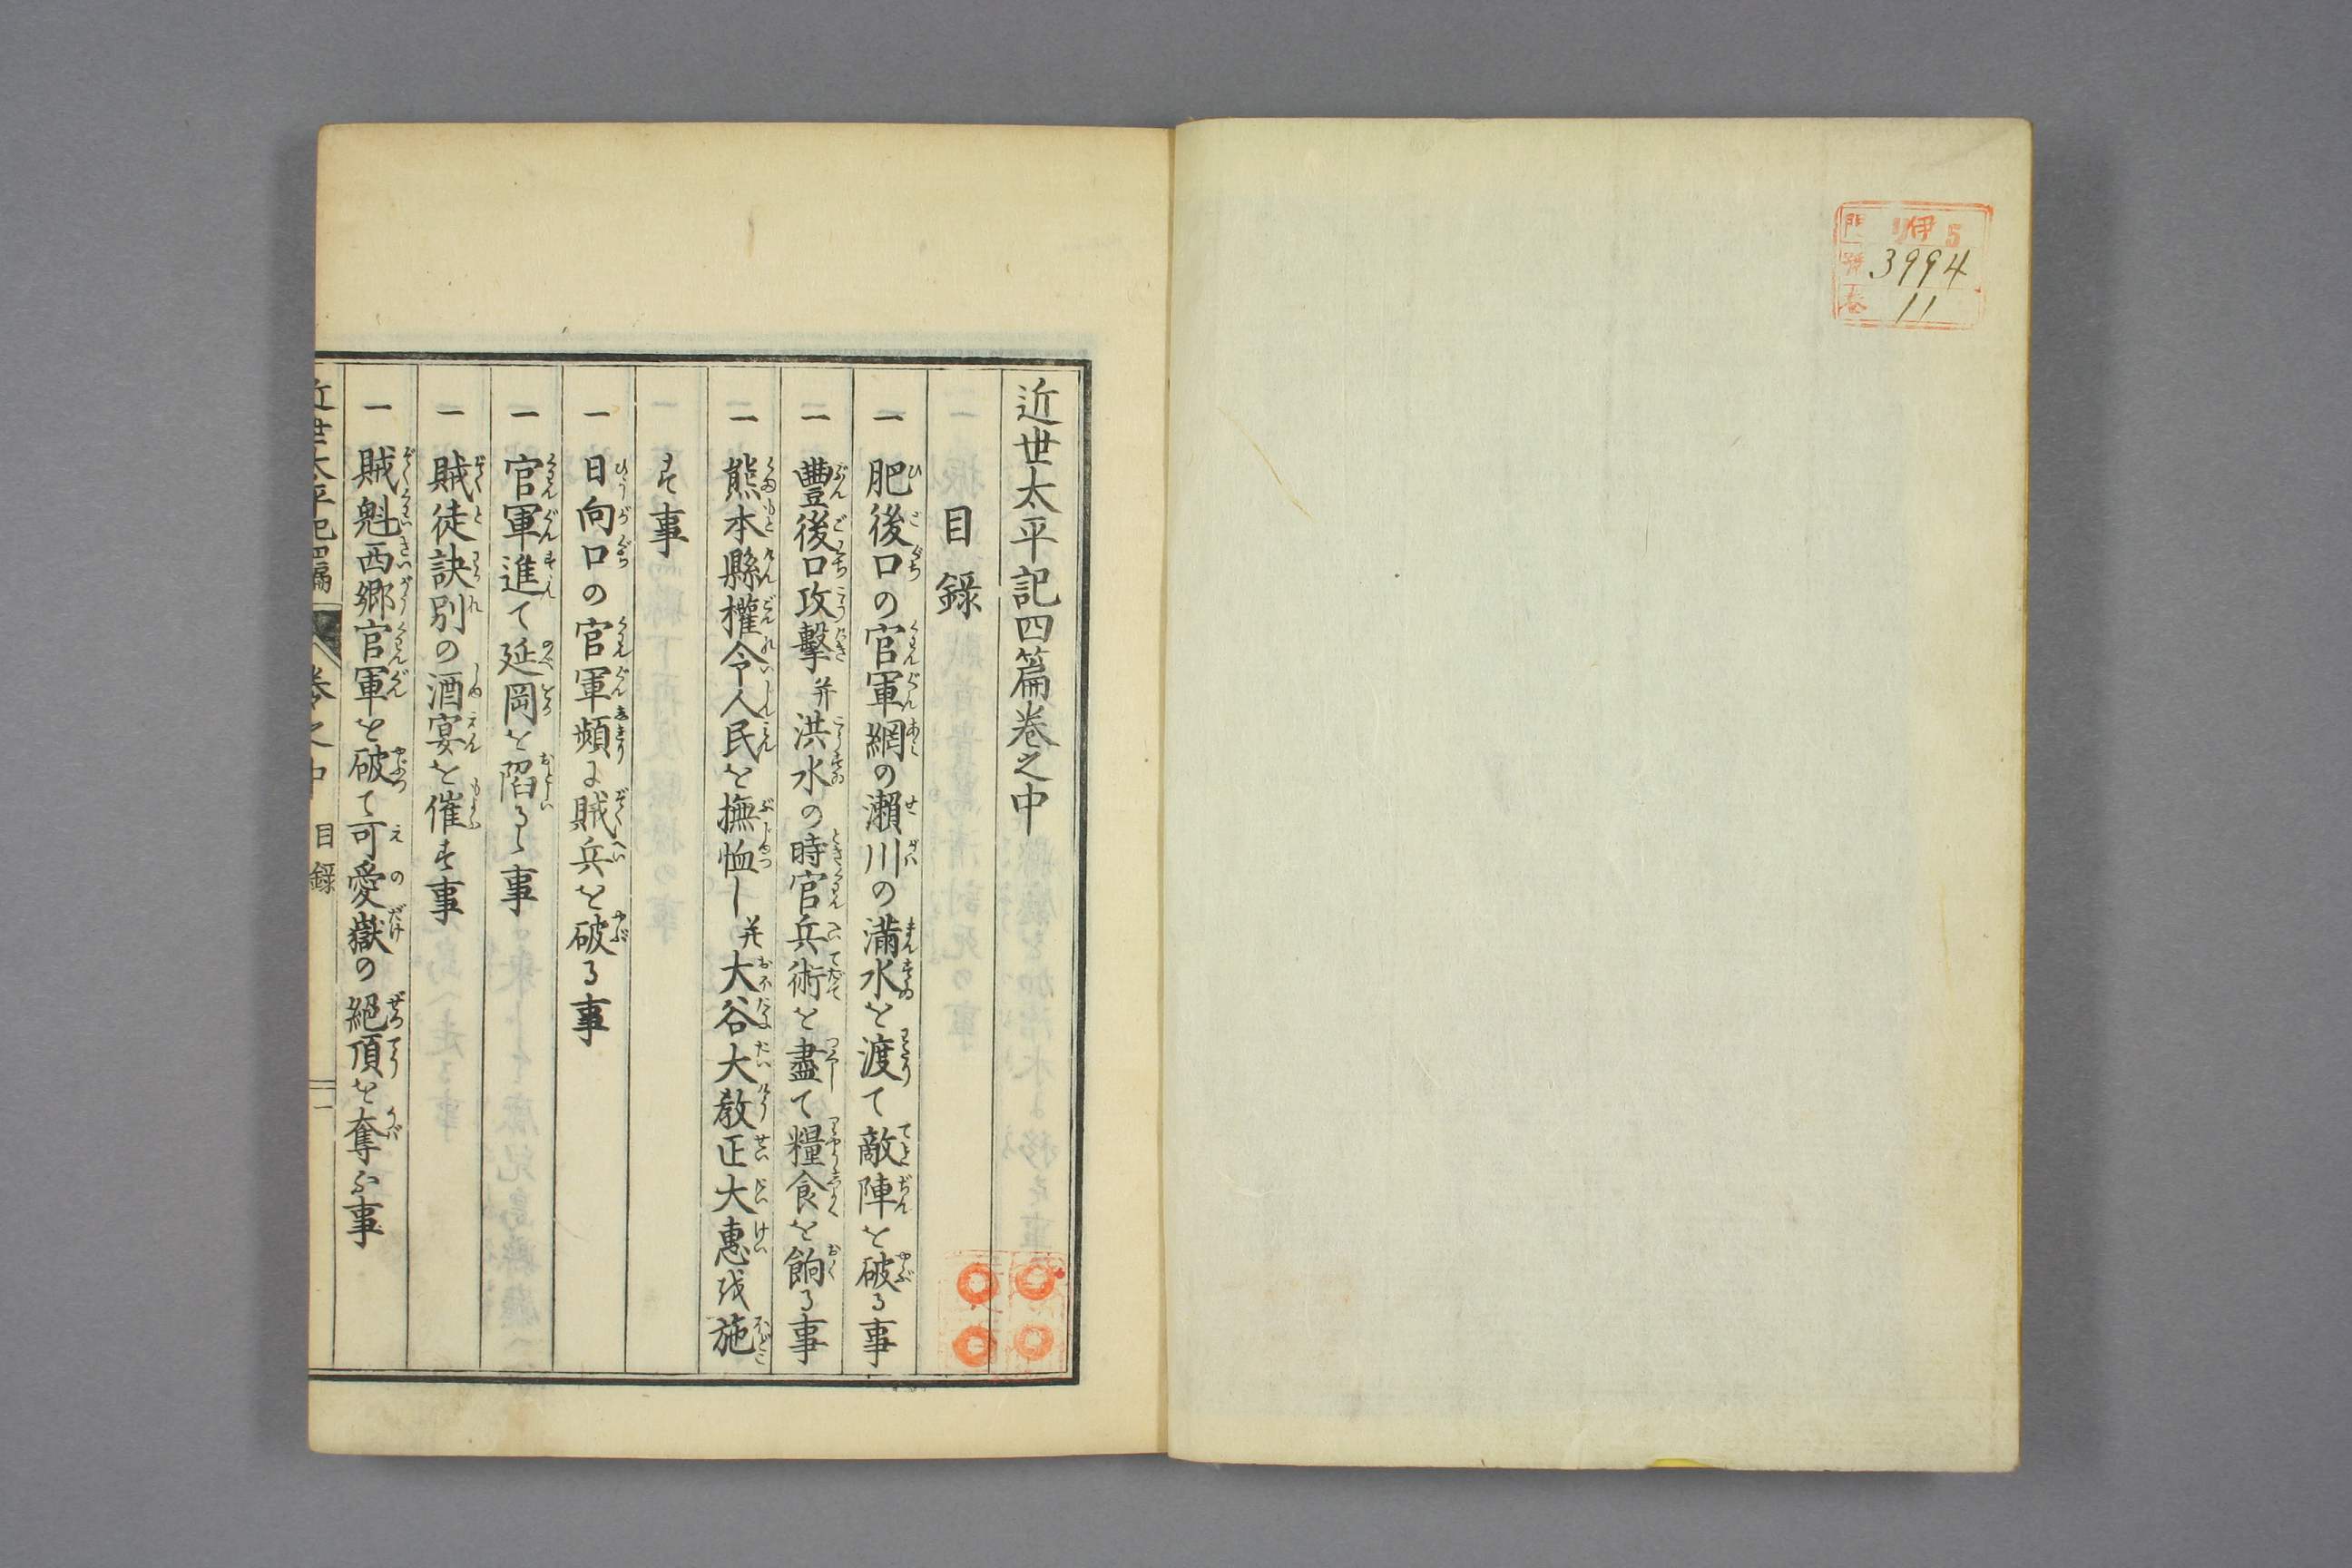 伊 5
門
號 3994
卷 11
近世太平記四篇卷之中
目錄
一 肥後口の官軍網の瀬川の満水を渡て敵陣を破る事
一 豊後口攻擊并洪水の時官兵術を盡て糧食を餉る事
一 熊本縣權令人民を撫恤し并大谷大教正大惠を施
す事
一 日向口の官軍頻に賊兵を破る事
一 官軍進て延岡を陷るゝ事
一 賊徒訣別の酒宴を催す事
一 賊魁西郷官軍を破て可愛嶽の絕頂を奪ふ事
近世太平記四篇 卷之中 目錄 一